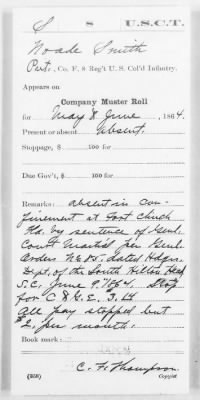 S 8 U.S.C.T.
Noade Smith
Pvt., Co. F, 8 Reg't U. S. Col'd Infantry.
Appears on
Company Muster Roll
for May & June, 1864.
Present or absent Absent.
Stoppage, $ 100 for
Due Gov't, $ 100 for
Remarks: absent in con-
finement at Fort Clinch
Fla. by sentence of Genl.
Court Martial per Genl.
Orders No 85. dated Hdqrs.
Dept. of the South Hilton Head
S.C. June 9, 1864. Stop
for C & G.E.
All pay stopped but
$2. per month.
Book mark:
C. F. Thompson
(358) Copyist